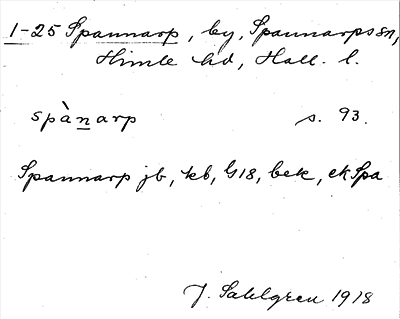 1-25 Spannarp, by, Spannarps sn,
Himle hd, Hall. l.
spànarp s. 93.
Spannarp jb, kb, G18, bek, ekSpa
J. Sahlgren 1918